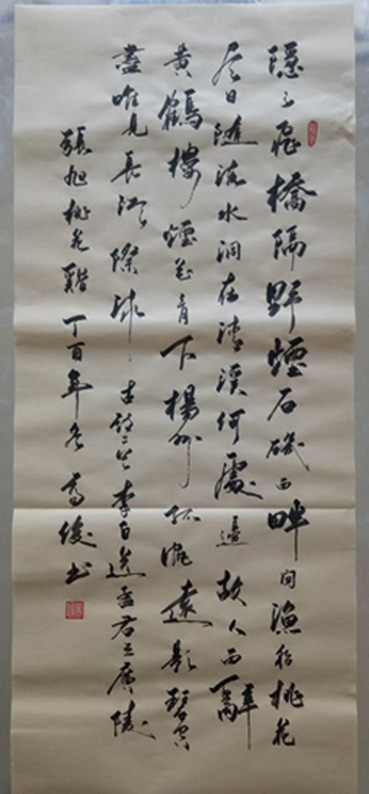 隱々飛橋隔野煙石磯西畔問漁船桃花
尽日隨流水洞在清溪何處邊故人西辭
黄鶴樓煙花三月下楊州孤帆遠影碧空
盡唯見長江天際流古詩二首李白送孟君之廣陵
張旭桃花谿丁酉年冬高俊書